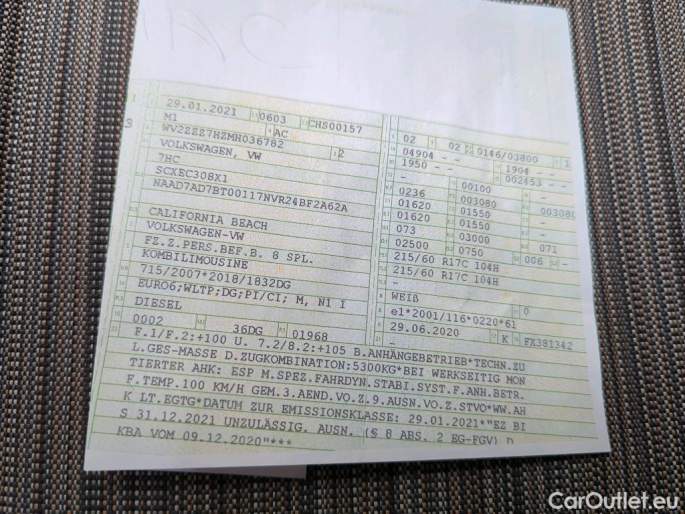 29.01.2021 0603 CHS00157
M1 AC
WV2ZZZ7HZMH036782 2
VOLKSWAGEN, VW
7HC
SCXEC308X1
NAAD7AD7BT00117NVR24BF2A62A
CALIFORNIA BEACH
VOLKSWAGEN-VW
FZ.Z.PERS.BEF.B. 8 SPL.
KOMBILIMOUSINE
715/2007*2018/1832DG
EURO6;WLTP;DG;PI/CI; M, N1 I
DIESEL
0002 36DG 01968
02 02 0146/03800 1
04904 - - 1904 - -
1950 - - 002453 - -
- 00100 -
0236 003080 003080
01620 01550 -
01620 01550 -
073 03000 071
02500 0750 006 -
215/60 R17C 104H
215/60 R17C 104H
-
WEIß 0
e1*2001/116*0220*61
29.06.2020 K FX381342
-
F.1/F.2:+100 U. 7.2/8.2:+105 B.ANHÄNGEBETRIEB*TECHN.ZU
L.GES-MASSE D.ZUGKOMBINATION:5300KG*BEI WERKSEITIG MON
TIERTER AHK: ESP M.SPEZ.FAHRDYN.STABI.SYST.F.ANH.BETR.
F.TEMP.100 KM/H GEM.3.AEND.VO.Z.9.AUSN.VO.Z.STVO*WW.AH
K LT.EGTG*DATUM ZUR EMISSIONSKLASSE: 29.01.2021*"EZ BI
S 31.12.2021 UNZULÄSSIG. AUSN. (§ 8 ABS. 2 EG-FGV) D.
KBA VOM 09.12.2020"***
CarOutlet.eu